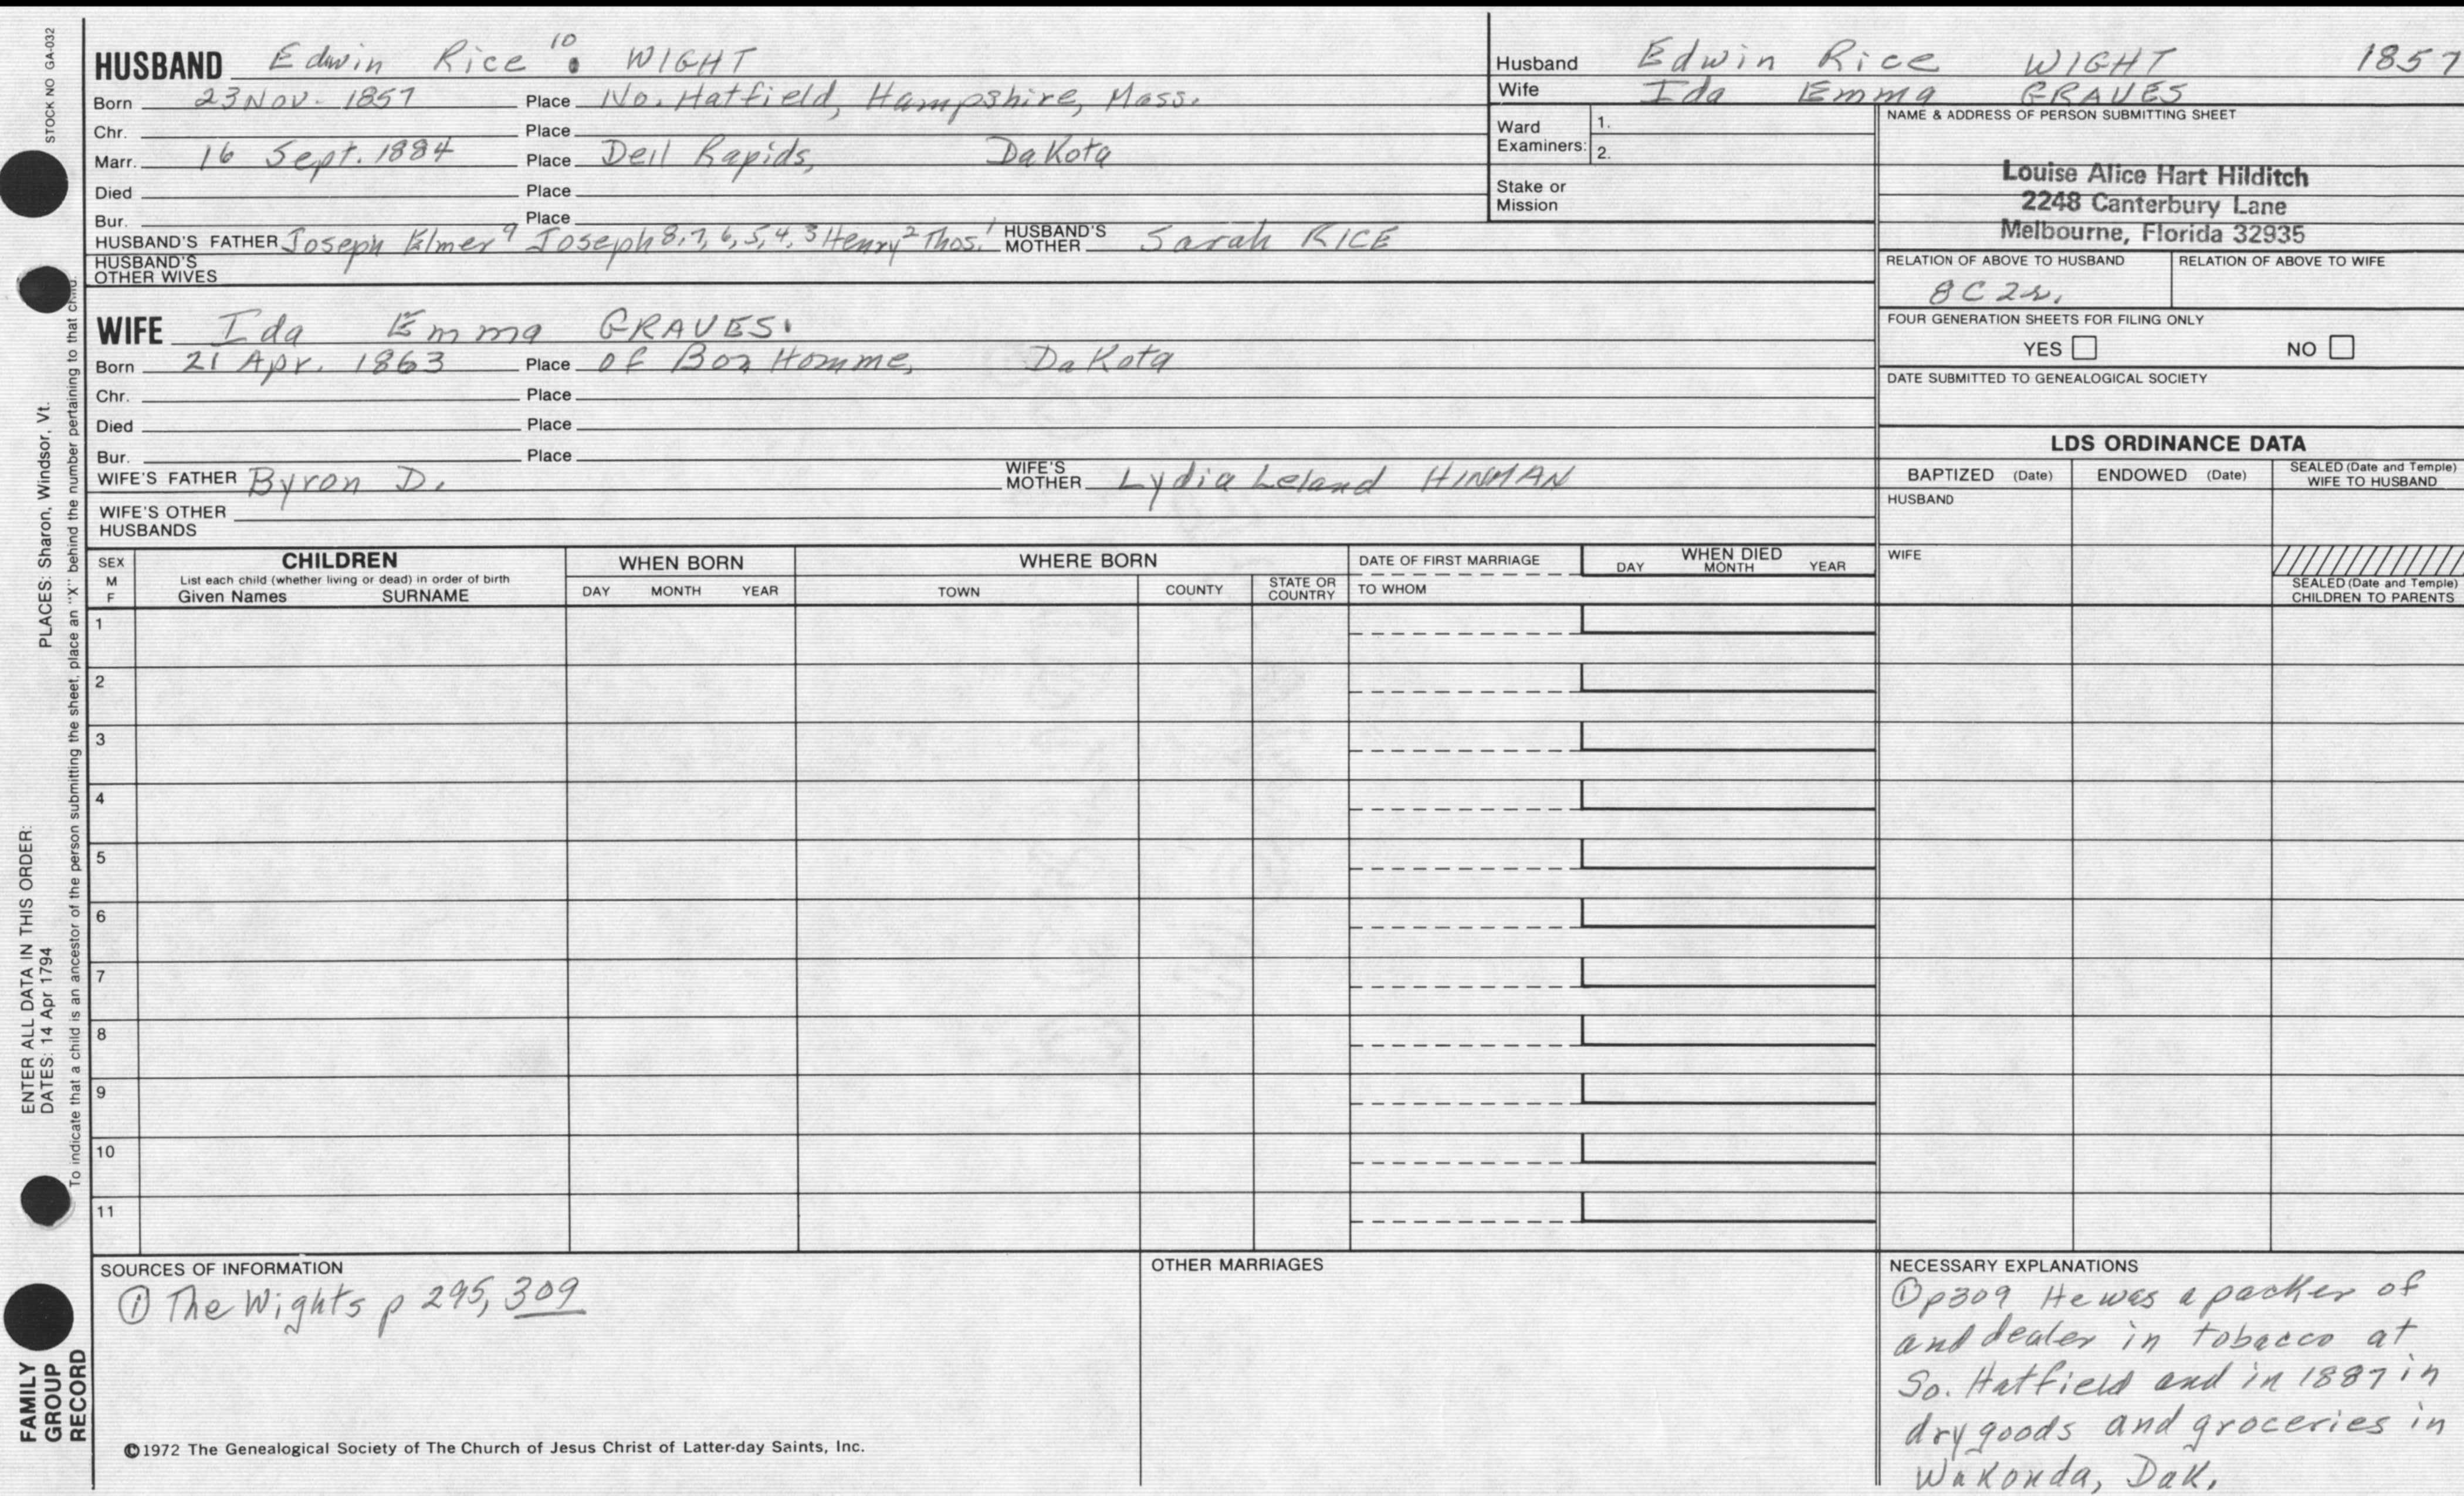 STOCK NO GA-032
HUSBAND Edwin Rice 10. WIGHT
Born 23 Nov. 1857 Place No. Hatfield, Hampshire, Mass.
Chr. Place
Marr. 16 Sept. 1884 Place Dell Rapids, Dakota
Died Place
Bur. Place
HUSBAND'S FATHER Joseph Elmer 9 Joseph 8,7,6,5,4,3 Henry 2 Thos. 1 HUSBAND'S MOTHER Sarah RICE
HUSBAND'S OTHER WIVES
WIFE Ida Emma GRAVES.
Born 21 Apr. 1863 Place of Bon Homme, Dakota
Chr. Place
Died Place
Bur. Place
WIFE'S FATHER Byron D. WIFE'S MOTHER Lydia Leland HINMAN
WIFE'S OTHER
HUSBANDS
Husband Edwin Rice WIGHT 1857
Wife Ida Emma GRAVES
Ward Examiners: 1.
2.
Stake or
Mission
NAME & ADDRESS OF PERSON SUBMITTING SHEET
Louise Alice Hart Hilditch
2248 Canterbury Lane
Melbourne, Florida 32935
RELATION OF ABOVE TO HUSBAND RELATION OF ABOVE TO WIFE
8C2r.
FOUR GENERATION SHEETS FOR FILING ONLY
YES NO
DATE SUBMITTED TO GENEALOGICAL SOCIETY
LDS ORDINANCE DATA
BAPTIZED (Date) ENDOWED (Date) SEALED (Date and Temple) WIFE TO HUSBAND
HUSBAND
WIFE
SEALED (Date and Temple)
CHILDREN TO PARENTS
SEX
M
F
CHILDREN
List each child (whether living or dead) in order of birth
Given Names SURNAME
WHEN BORN
DAY MONTH YEAR
WHERE BORN
TOWN COUNTY STATE OR COUNTRY
DATE OF FIRST MARRIAGE
TO WHOM
WHEN DIED
DAY MONTH YEAR
1
2
3
4
5
6
7
8
9
10
11
SOURCES OF INFORMATION
① The Wights p 295, 309
©1972 The Genealogical Society of The Church of Jesus Christ of Latter-day Saints, Inc.
OTHER MARRIAGES
NECESSARY EXPLANATIONS
① p309 He was a packer of
and dealer in tobacco at
So. Hatfield and in 1887 in
dry goods and groceries in
Wakonda, Dak.
PLACES: Sharon, Windsor, Vt.
To indicate that a child is an ancestor of the person submitting the sheet, place an "X" behind the number pertaining to that child.
ENTER ALL DATA IN THIS ORDER:
DATES: 14 Apr 1794
FAMILY
GROUP
RECORD